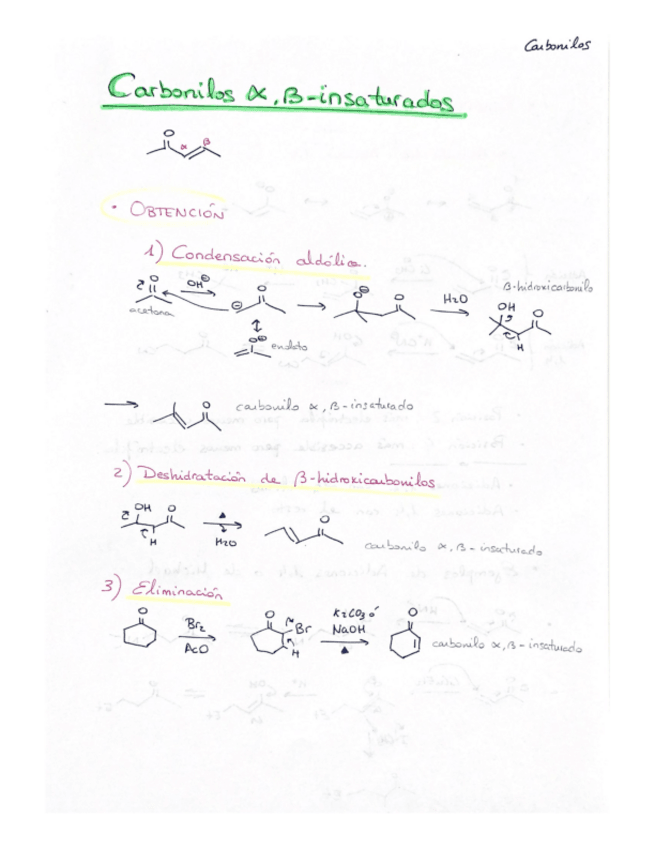 Carbonilos
Carbonilos α, β-insaturados
O
α β
• OBTENCIÓN
1) Condensación aldólica.
O OH⊖ O O⊖ O H2O β-hidroxicarbonilo
acetona ⊖ OH O
H
O⊖ enolato
O carbonilo α, β-insaturado
2) Deshidratación de β-hidroxicarbonilos
OH O ▲ O
H H2O carbonilo α, β-insaturado
3) Eliminación
O Br2 O Br K2CO3 ó O
AcO H NaOH carbonilo α, β-insaturado
▲